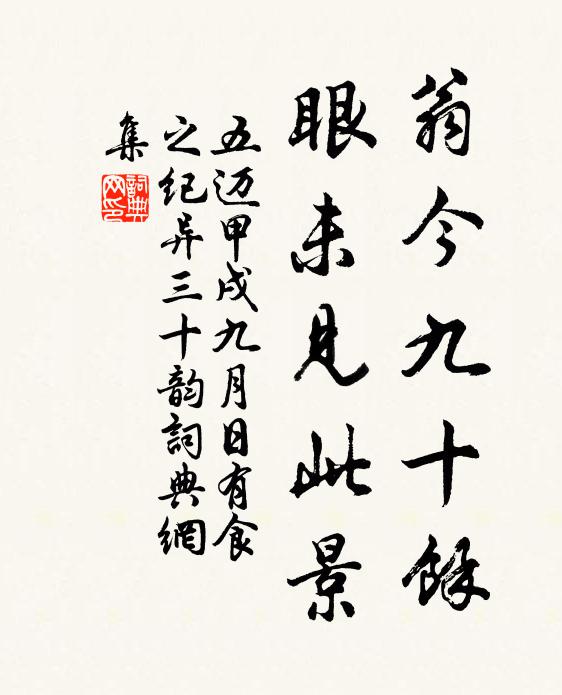 翁今九十餘
眼未見此景
五迈甲戌九月日有食
之纪异三十韵詞典網
集
詞典
网印